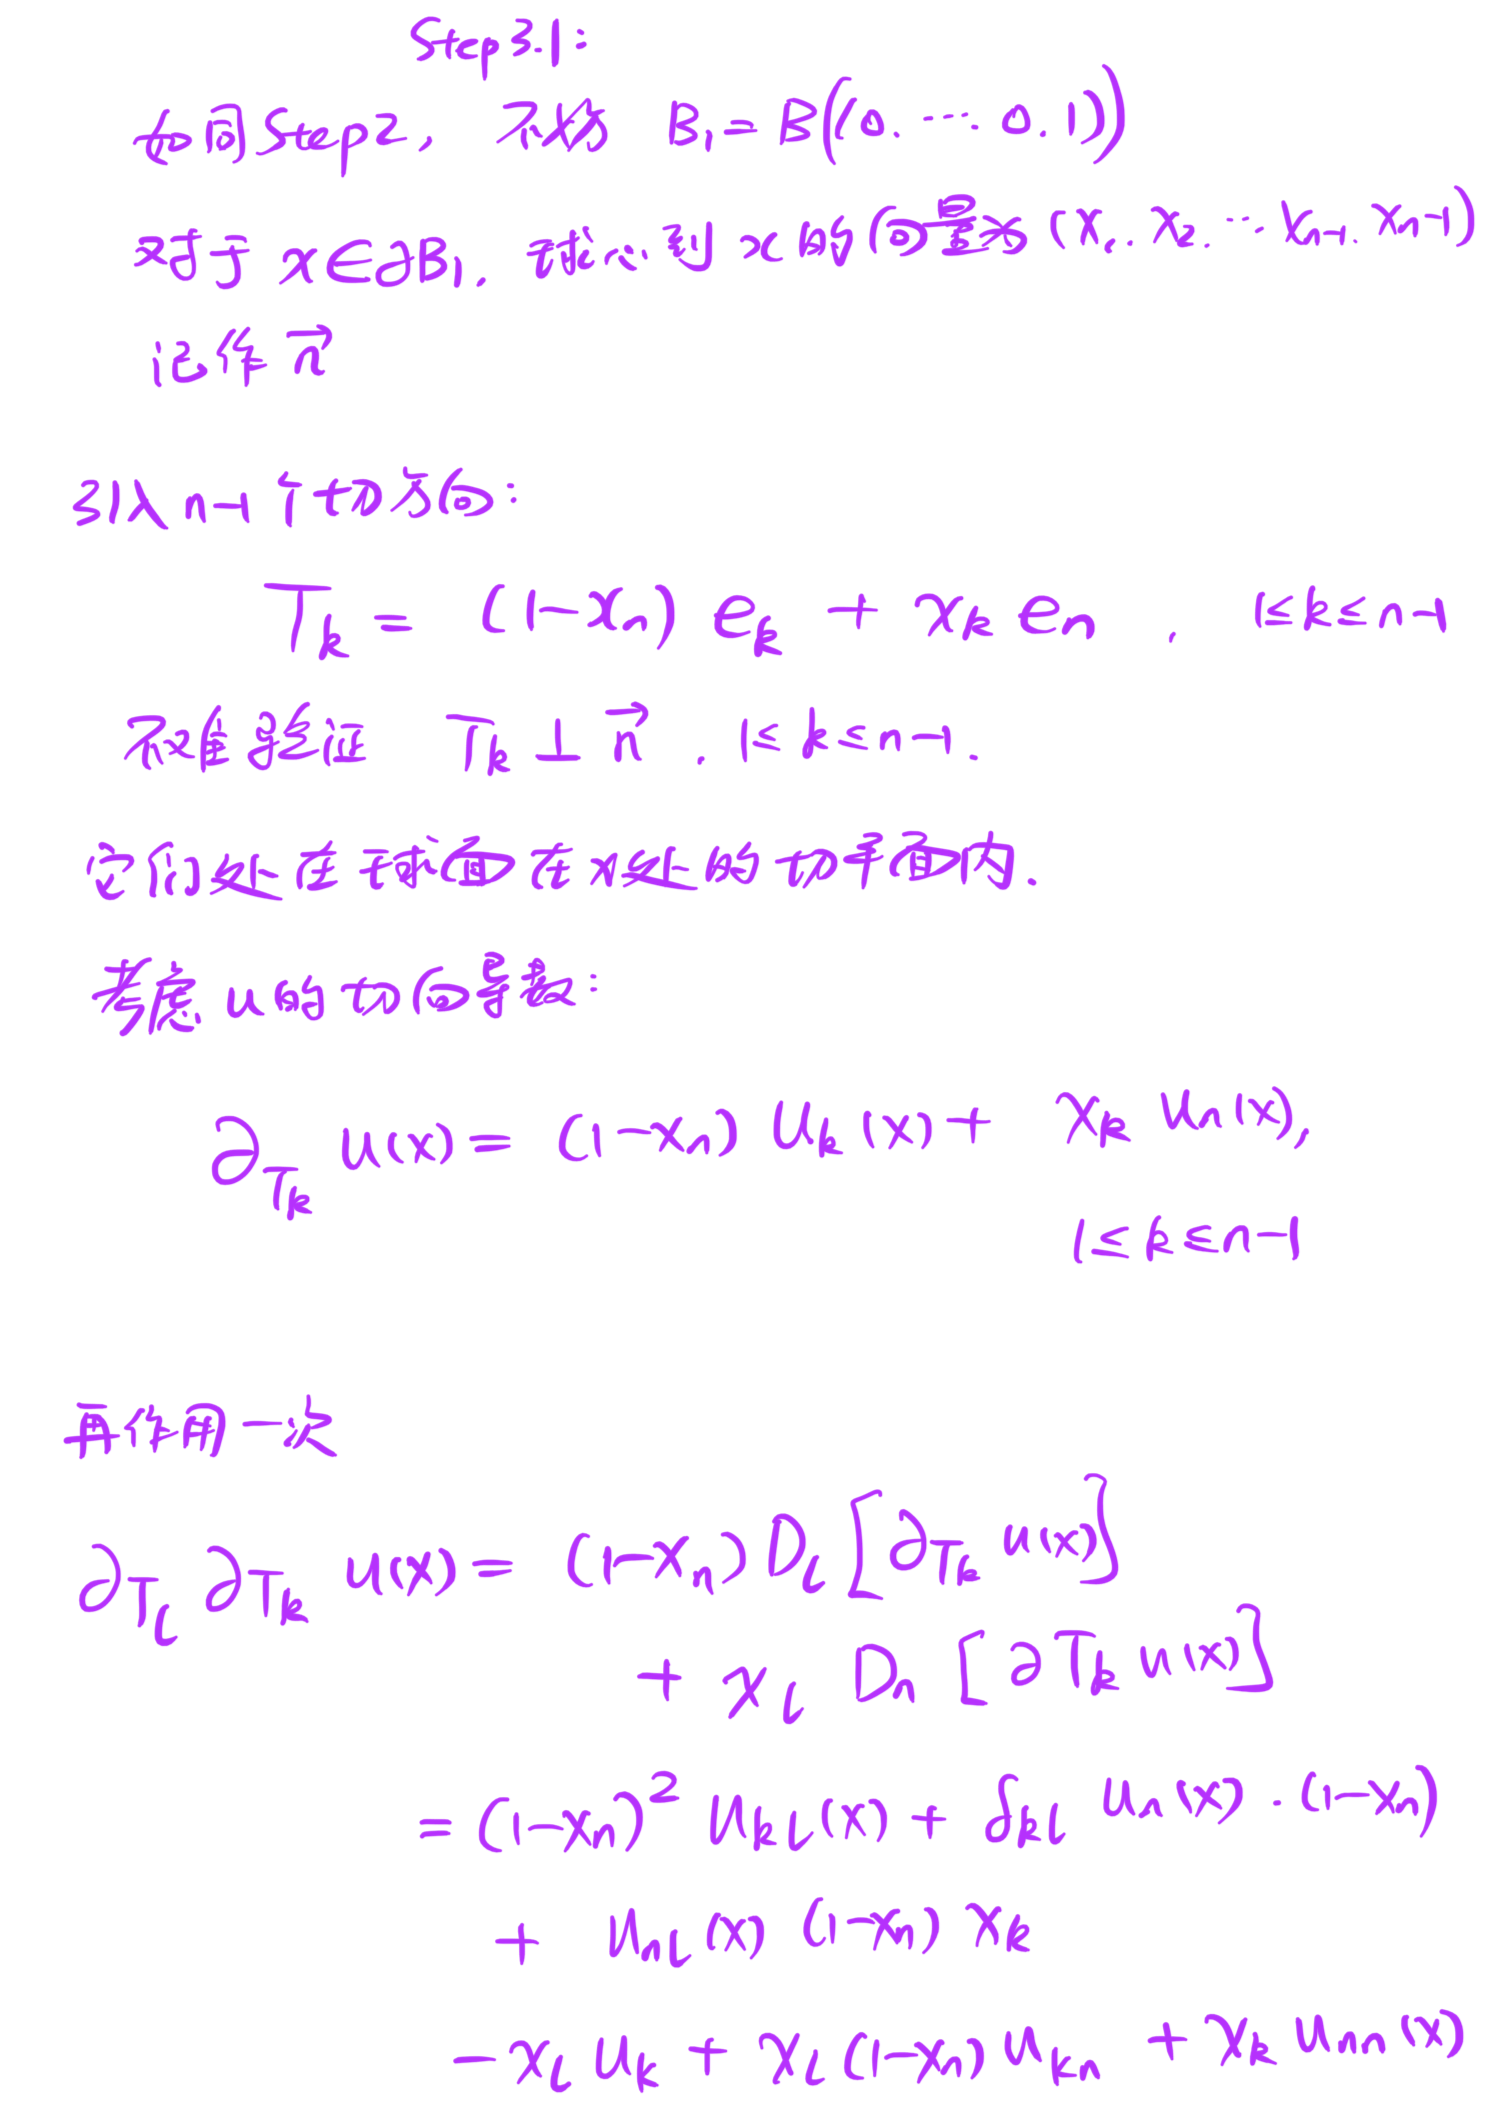 Step3.1:
如同Step2, 不妨 B₁=B((0.⋯.0.1))
对于 x∈∂B₁. 球心到x的向量为(x₁.x₂.⋯xₙ₋₁.xₙ-1)
记作 n⃗
引入n-1个切方向:
Tₖ = (1-xₙ) eₖ + xₖ eₙ . 1≤k≤n-1
不难验证 Tₖ⊥n⃗ . 1≤k≤n-1.
它们处在球面在x处的切平面内.
考虑u的切向导数:
∂_{Tₖ} u(x) = (1-xₙ) uₖ(x) + xₖ uₙ(x),
1≤k≤n-1
再作用一次
∂_{T_l} ∂_{Tₖ} u(x) = (1-xₙ) D_l [∂_{Tₖ} u(x)]
+ x_l Dₙ [∂Tₖ u(x)]
= (1-xₙ)² u_{kl}(x) + δ_{kl} uₙ(x)·(1-xₙ)
+ u_{nl}(x) (1-xₙ) xₖ
- x_l uₖ + x_l(1-xₙ) u_{kn} + xₖ u_{nn}(x)